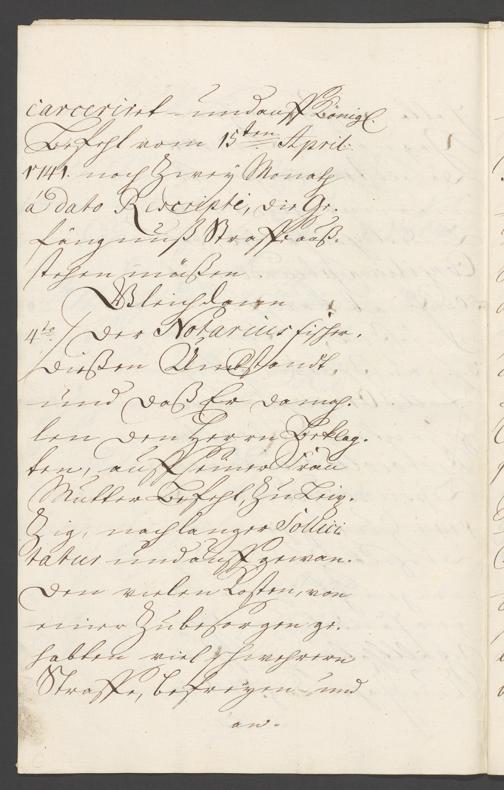 carceriret und auff Königl.
Befehl vom 15ten April
1741. noch Zwey Monath
á dato Rescripti, die Ge-
fängnuß Straffe auß-
stehen müßen
Gleichdann
4to/ der Notarius Fischer,
dießen Umbstandt,
und daß Er damah-
len den Herrn Beklag-
ten, auff seiner Frau
Mutter Befehl, Zu Leip-
Zig, nach langer Sollici-
tatur und auffgewan-
den vielen Kosten, von
einer Zubesorgen ge-
habten viel schwehrern
Straffe, befreyen und
an-